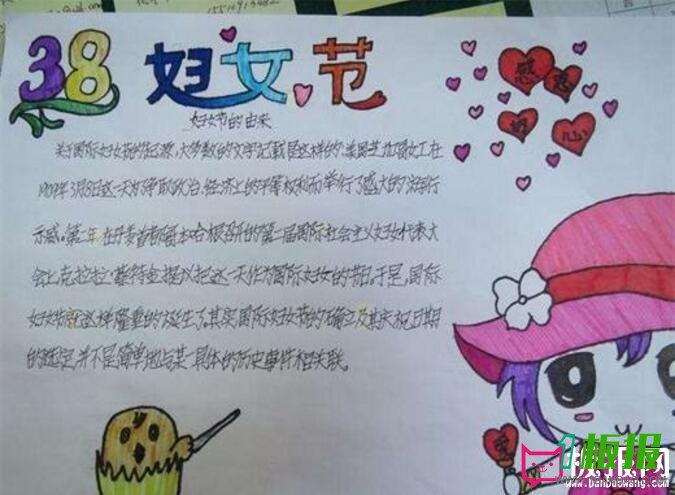 15510913482
38 妇女节
感恩
的心
妇女节的由来
关于国际妇女节的起源,大多数的文字记载是这样的:美国芝加哥女工在
1909年3月8日这一天为争取政治、经济上的平等权利而举行了盛大的游行
示威。第二年在丹麦首都哥本哈根召开的第二届国际社会主义妇女代表大
会上克拉拉·蔡特金提议把这一天作为国际妇女的节日。于是,国际
妇女节就这样隆重的诞生了。其实国际妇女节的确立及其庆祝日期
的选定,并不是简单地与某一具体的历史事件相关联。
爱
板报
板报网
www.banbaowang.com